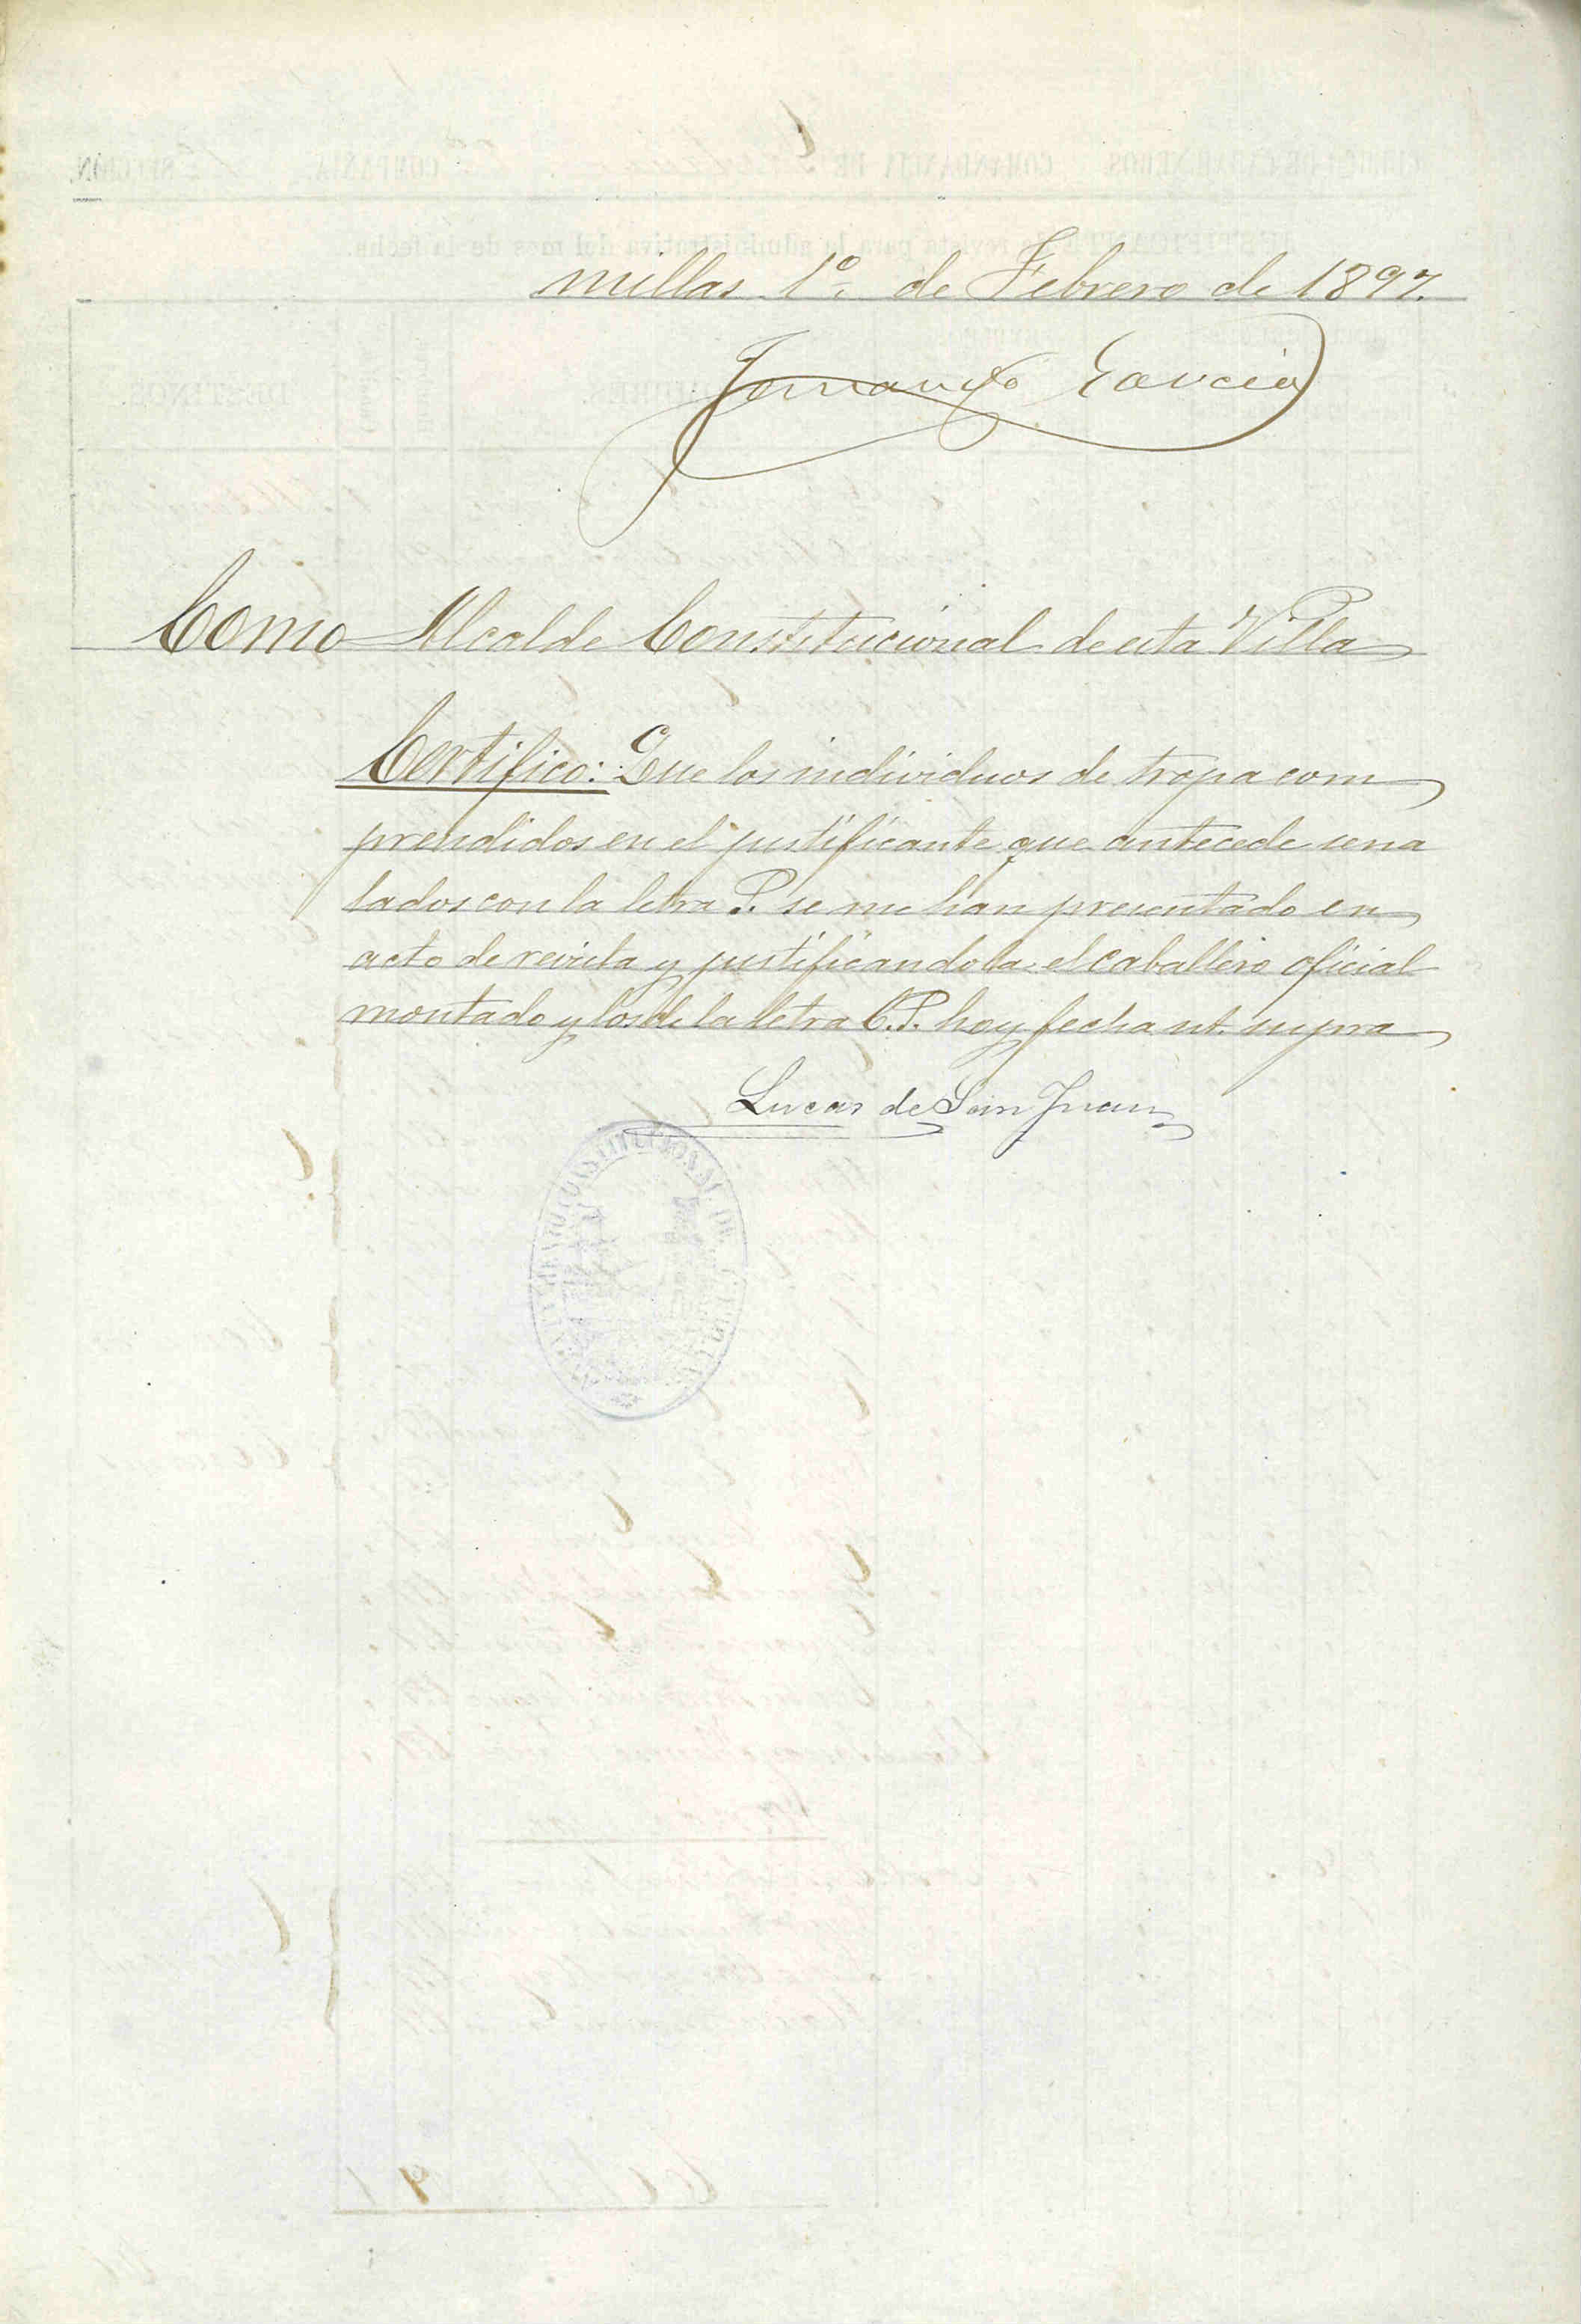 millas 1º de Febrero de 1897.
Fernando Garcia
Como Alcalde Constitucional de esta Villa
Certifico: Que los individuos de tropa com
prendidos en el justificante que antecede sena
lados con la letra P. se me han presentado en
acto de revista y justificandola el caballero oficial
montado y los de la letra C.P. hoy fecha ut. supra
Lucas de San Juan
CONSTITUCIONAL DE